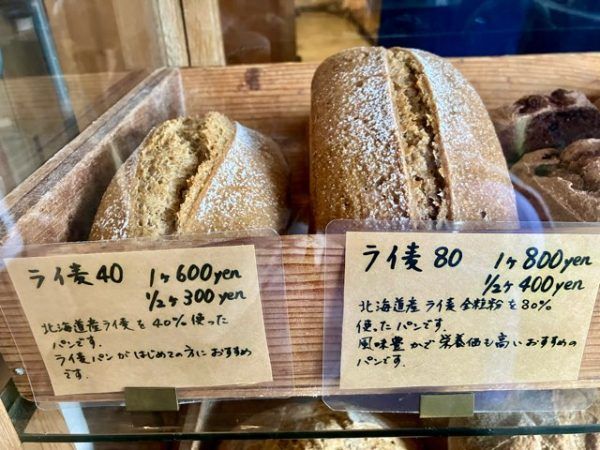 ライ麦40 1ヶ600yen
1/2ヶ300yen
北海道産ライ麦を40%使った
パンです.
ライ麦パンがはじめての方におすすめ
です.
ライ麦80 1ヶ800yen
1/2ヶ400yen
北海道産ライ麦全粒粉を80%
使ったパンです.
風味豊かで栄養価も高いおすすめの
パンです.